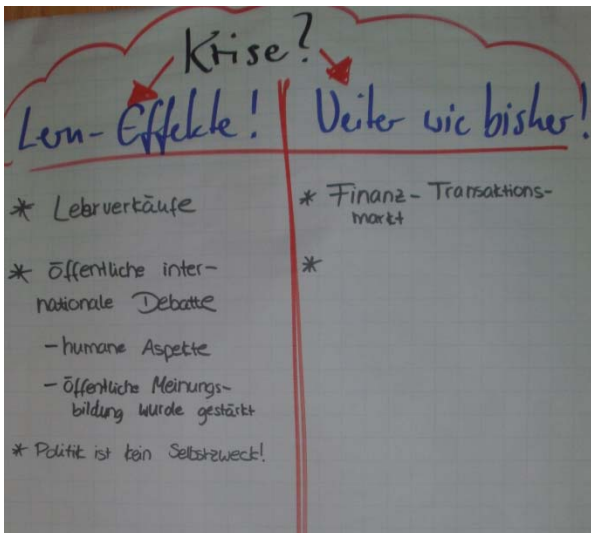 Krise?
Lern-Effekte!
Weiter wie bisher!
* Leerverkäufe
* öffentliche inter-
nationale Debatte
- humane Aspekte
- öffentliche Meinungs-
bildung wurde gestärkt
* Politik ist kein Selbstzweck!
* Finanz-Transaktions-
markt
*